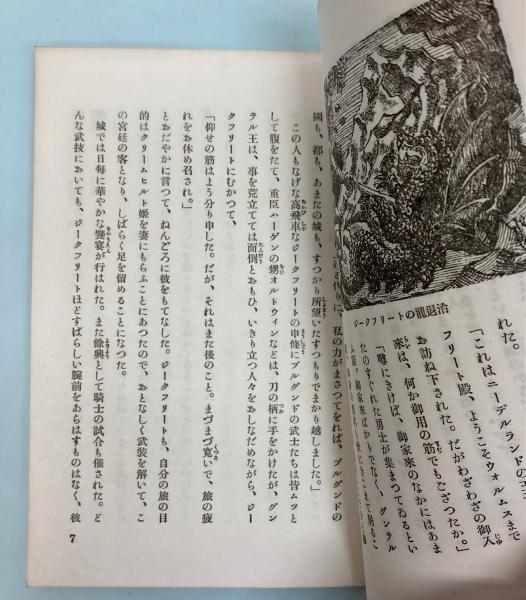 ジークフリートの龍退治
「これはニーデルランドの王
フリート殿、ようこそウォルムスまで
お訪ね下された。だがわざわざの御入
来は、何か御用の筋でもござつたか。」
「噂にきけば、御家來のなかにはあま
たのすぐれた勇士が集まつてゐるとい
御家來ばかりでなく、グンラル
りに、私の力がまさつてをれば、ブルグンドの
國も、都も、あまたの城も、すつかり所望いたすつもりでまかり越しました。」
この人もなげな高飛車なジークフリートの申條にブルグンドの武士たちは皆ムツと
して腹をたて、重臣ハーゲンの甥オルトウィンなどは、刀の柄に手をかけたが、グン
ラル王は、事を荒立てては面倒とおもひ、いきり立つ人々をおしなだめながら、ジー
クフリートにむかつて、
「仰せの筋はよう分り申した。だが、それはまた後のこと。まづまづ寛いで、旅の疲
れをお休め召され。」
とおだやかに言つて、ねんごろに彼をもてなした。ジークフリートも、自分の旅の目
的はクリームヒルト姫を妻にもらふことにあつたので、おとなしく武装を解いて、こ
の宮廷の客となり、しばらく足を留めることになつた。
城では日每に華やかな饗宴が行はれた。また餘興として騎士の試合も催された。ど
んな武技においても、ジークフリートほどすばらしい腕前をあらはすものはなく、彼
7